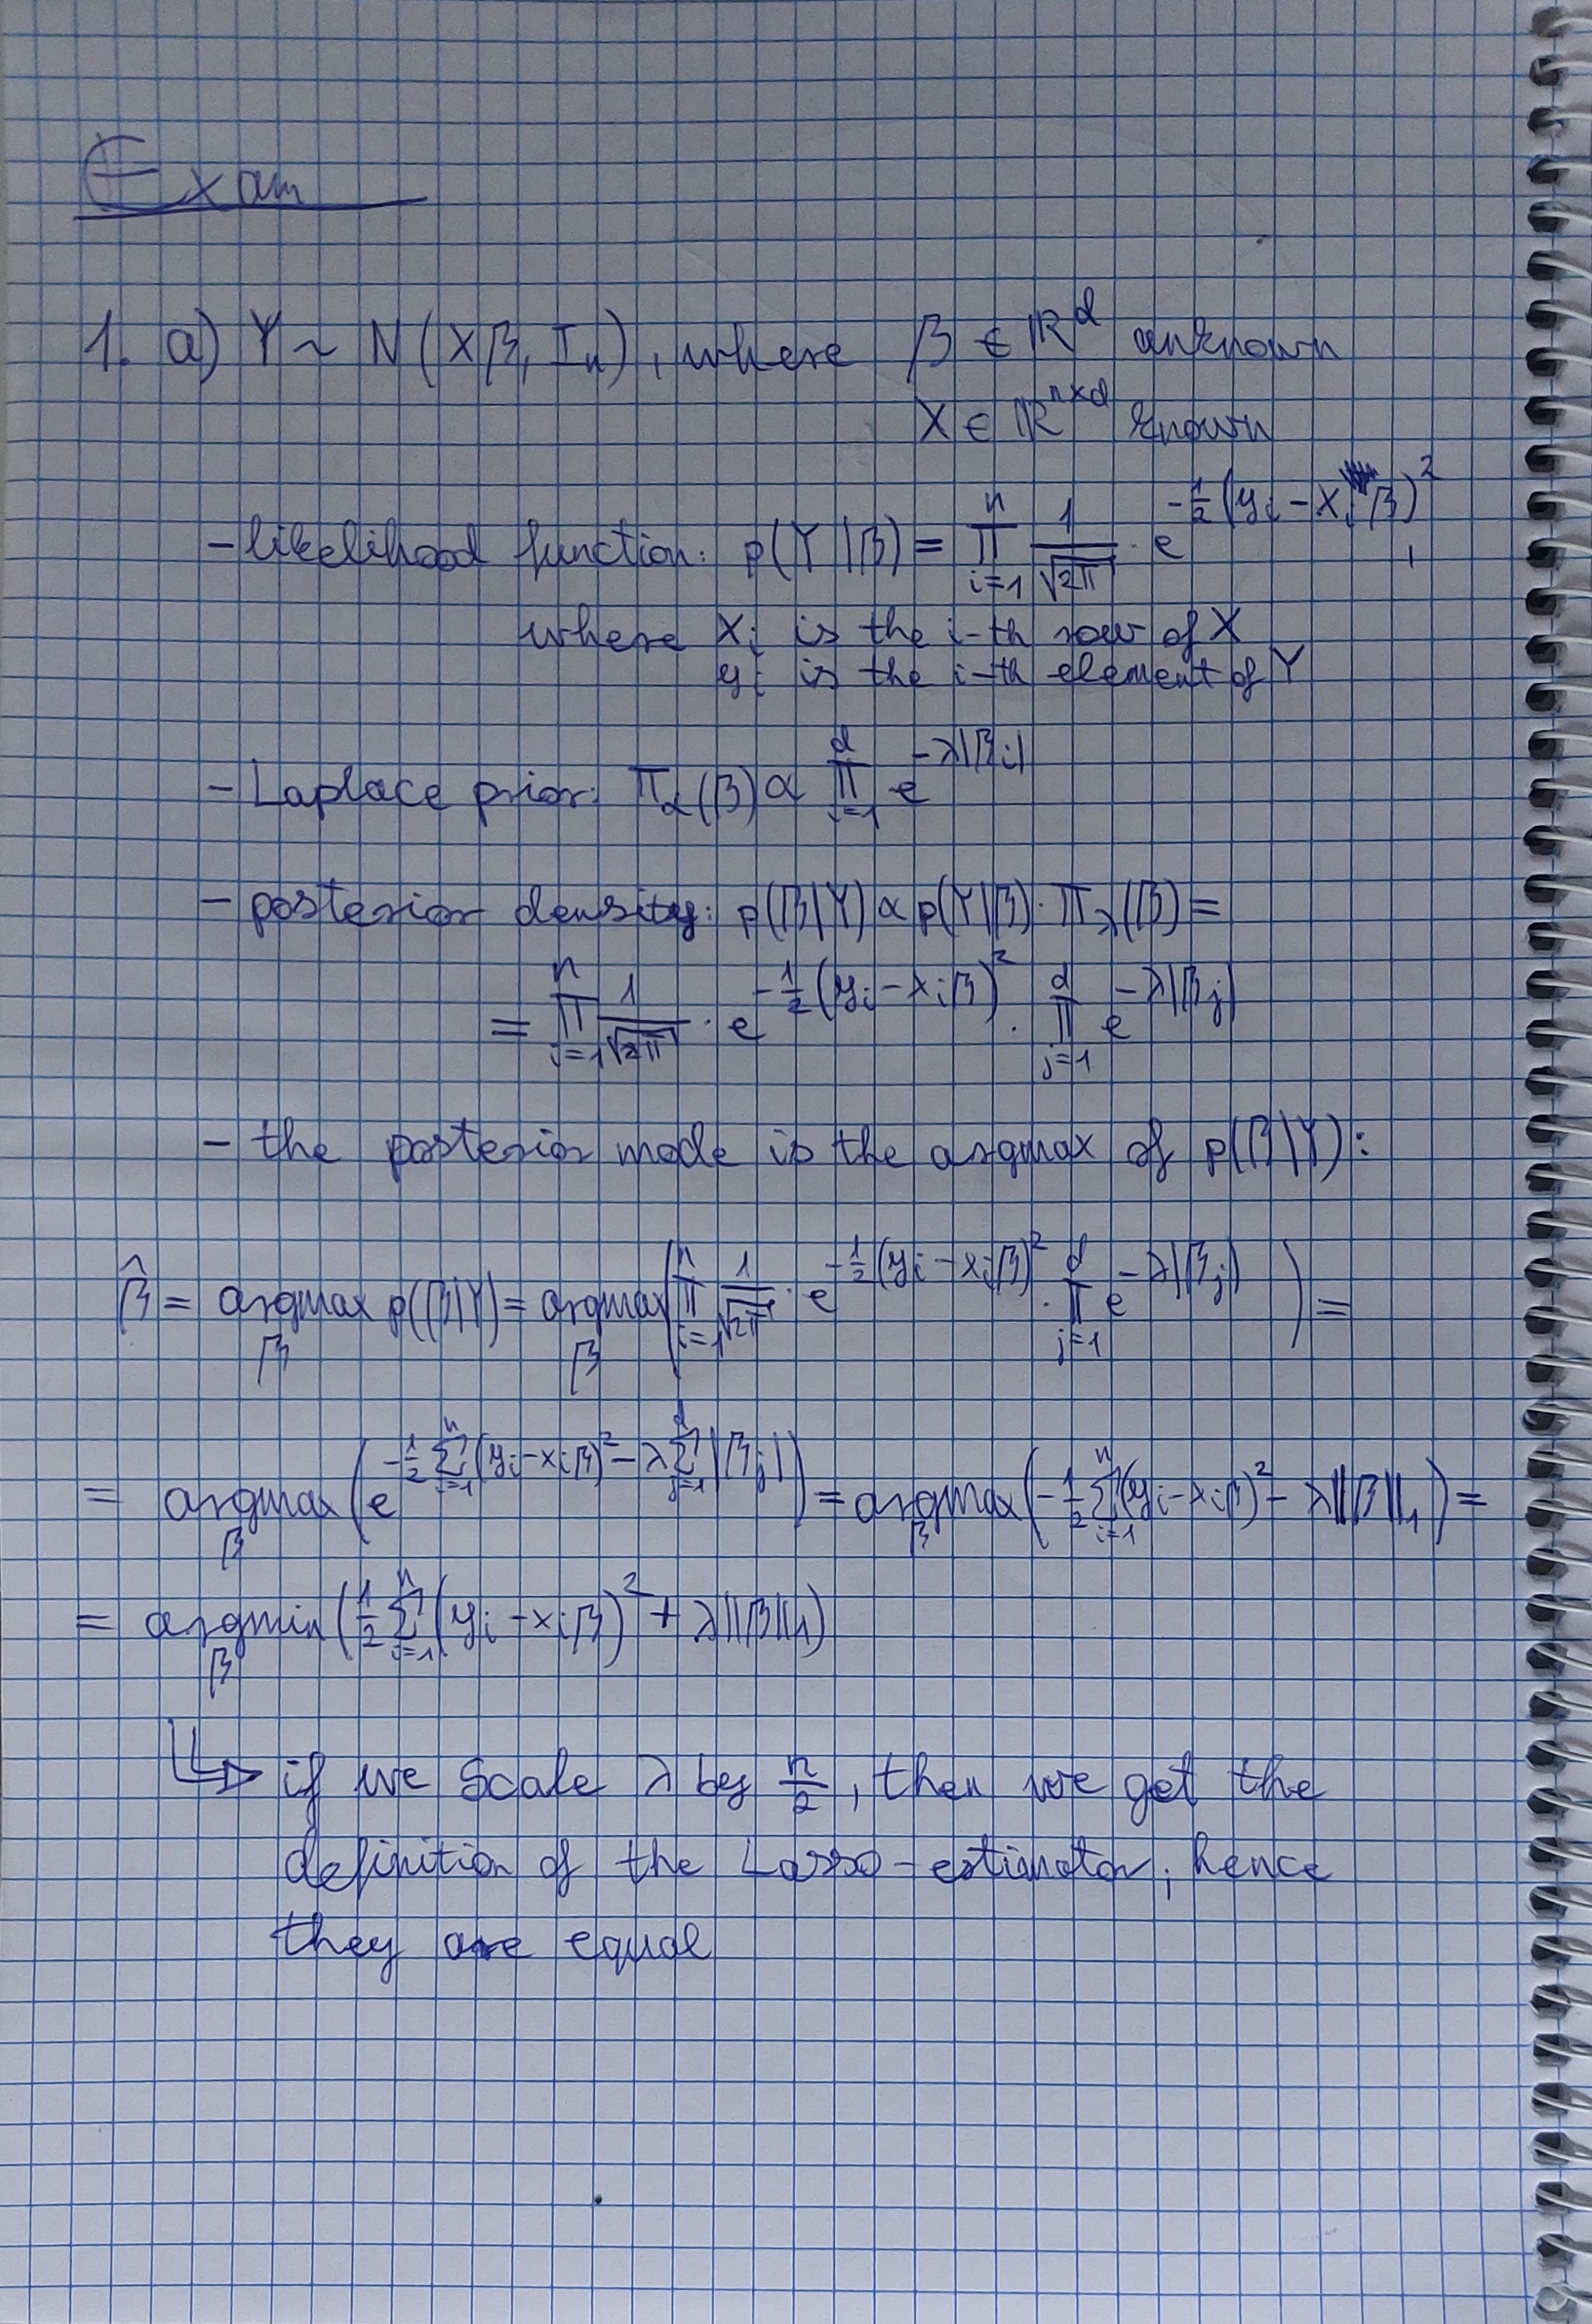 Exam
1. a) Y ~ N(Xβ, Iₙ), where β ∈ ℝᵈ unknown
X ∈ ℝⁿˣᵈ known
- likelihood function: p(Y|β) = ∏_{i=1}^{n} 1/√(2π) · e^{-1/2 (y_i - x_i β)^2},
where x_i is the i-th row of X
y_i is the i-th element of Y
- Laplace prior: π_λ(β) ∝ ∏_{i=1}^{d} e^{-λ|β_i|}
- posterior density: p(β|Y) ∝ p(Y|β) · π_λ(β) =
= ∏_{i=1}^{n} 1/√(2π) · e^{-1/2 (y_i - x_i β)^2} · ∏_{j=1}^{d} e^{-λ|β_j|}
- the posterior mode is the argmax of p(β|Y):
β̂ = argmax_β p(β|Y) = argmax_β (∏_{i=1}^{n} 1/√(2π) · e^{-1/2 (y_i - x_i β)^2} · ∏_{j=1}^{d} e^{-λ|β_j|}) =
= argmax_β (e^{-1/2 ∑_{i=1}^{n} (y_i - x_i β)^2 - λ ∑_{j=1}^{d} |β_j|}) = argmax_β (-1/2 ∑_{i=1}^{n} (y_i - x_i β)^2 - λ||β||_1) =
= argmin_β (1/2 ∑_{i=1}^{n} (y_i - x_i β)^2 + λ||β||_1)
↳ if we scale λ by n/2, then we get the
definition of the Lasso-estimator, hence
they are equal